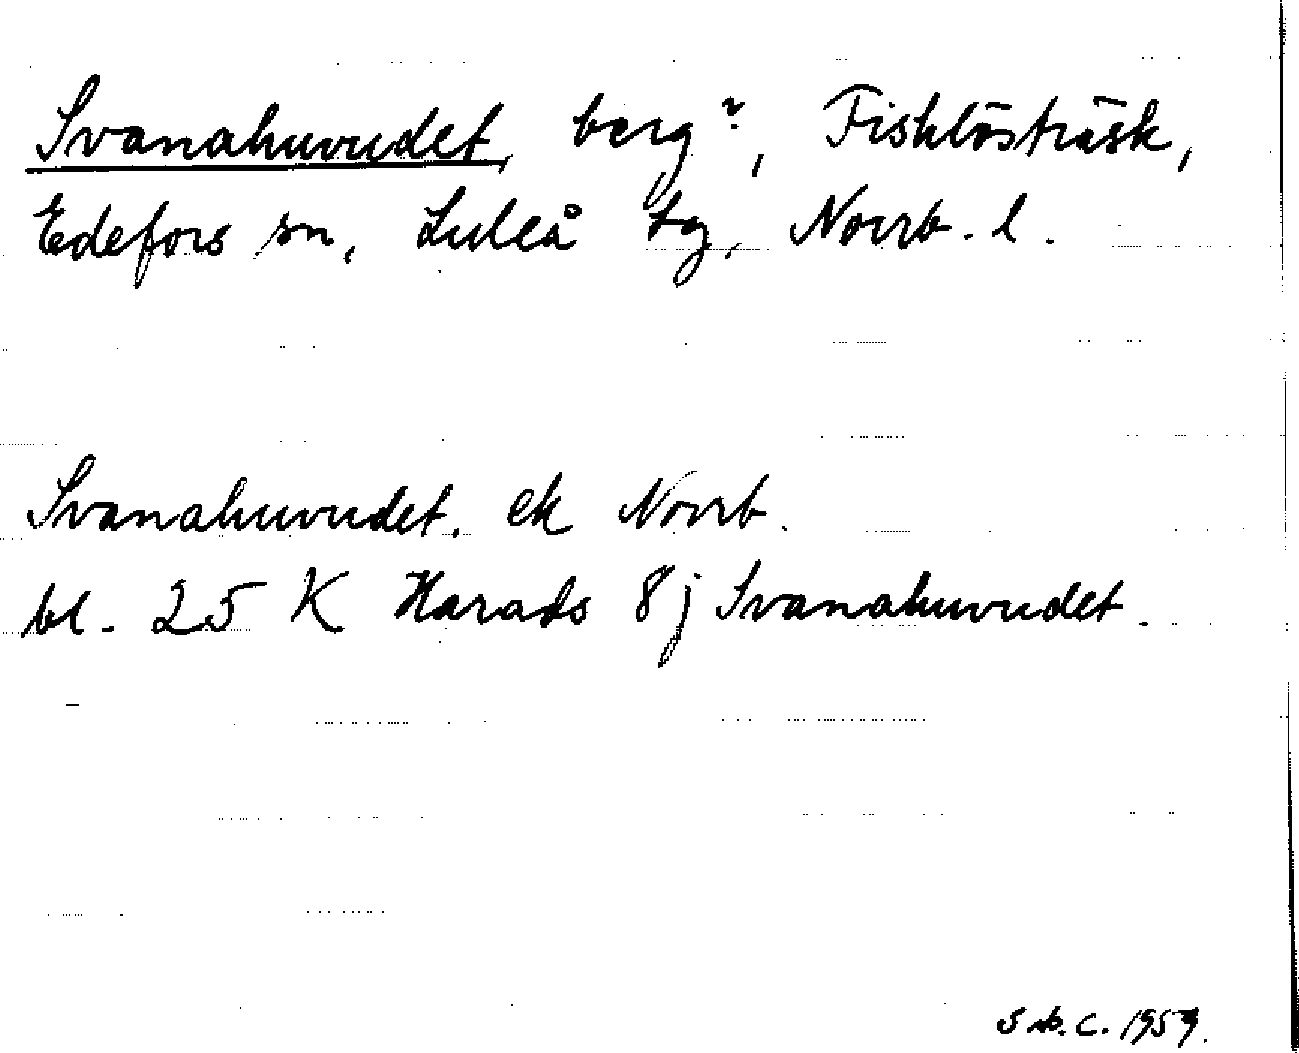 Svanahuvudet, berg?, Fisklösträsk,
Edefors sn, Luleå tg, Norrb. l.
Svanahuvudet. ek Norrb.
bl. 25 K Harads 8j Svanahuvudet.
S. C. 1959.